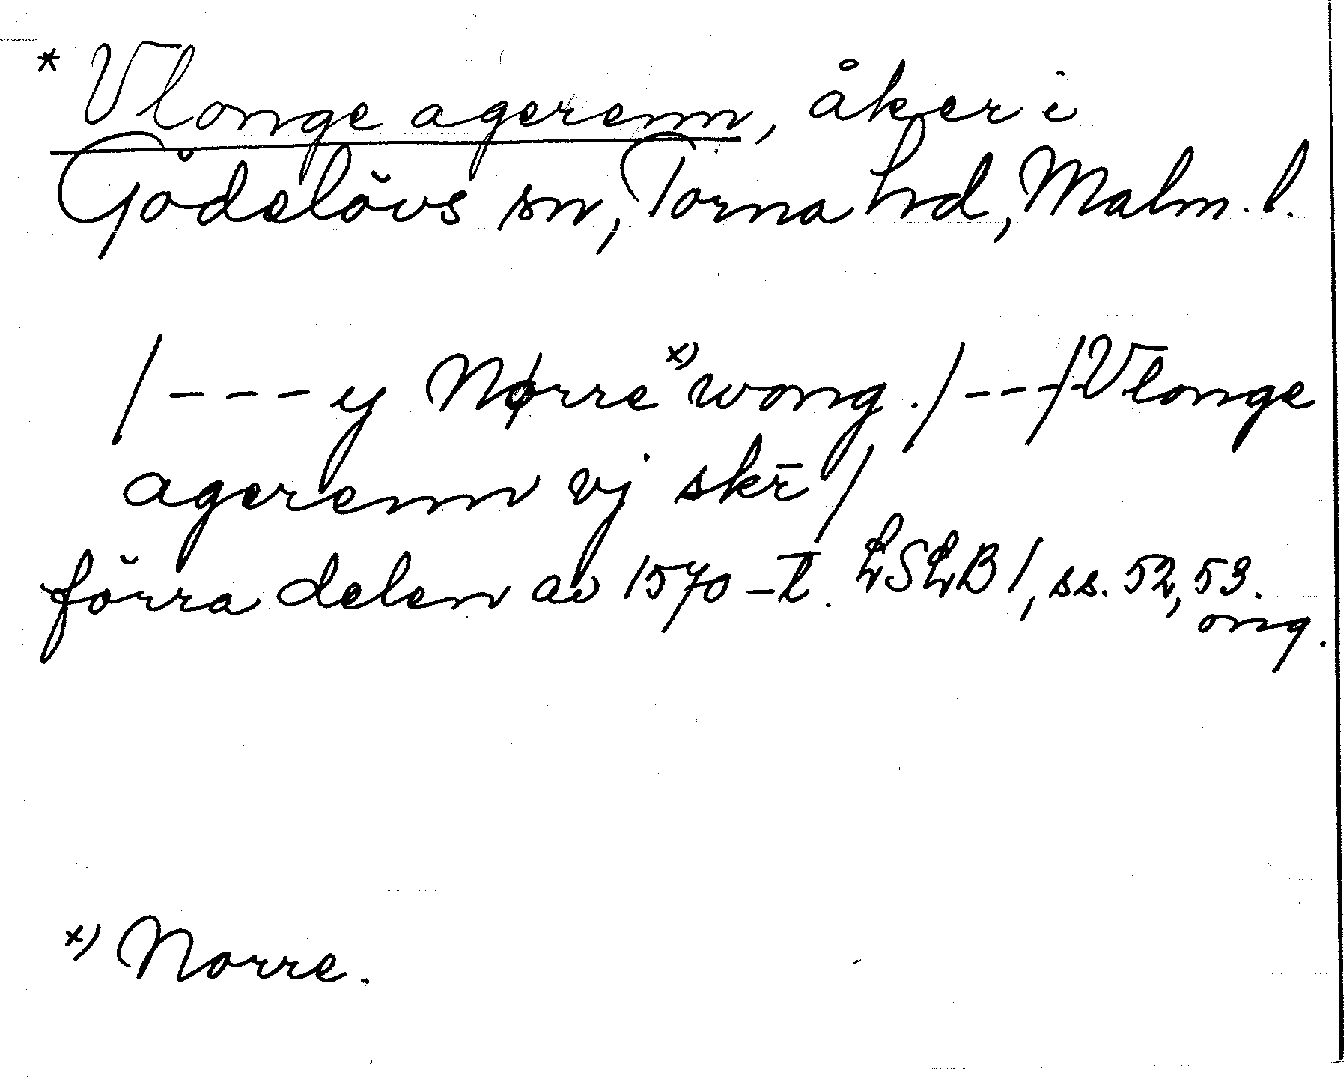 * Vlonge agerenn, åker i
Gödelövs sn, Torna hd, Malm. l.
/ - - - y Nørre x) wong. / - - - / Vlonge
agerenn vj skr̄ /
förra delen av 1570-t. LSLB 1, ss. 52, 53.
orig.
x) Norre.